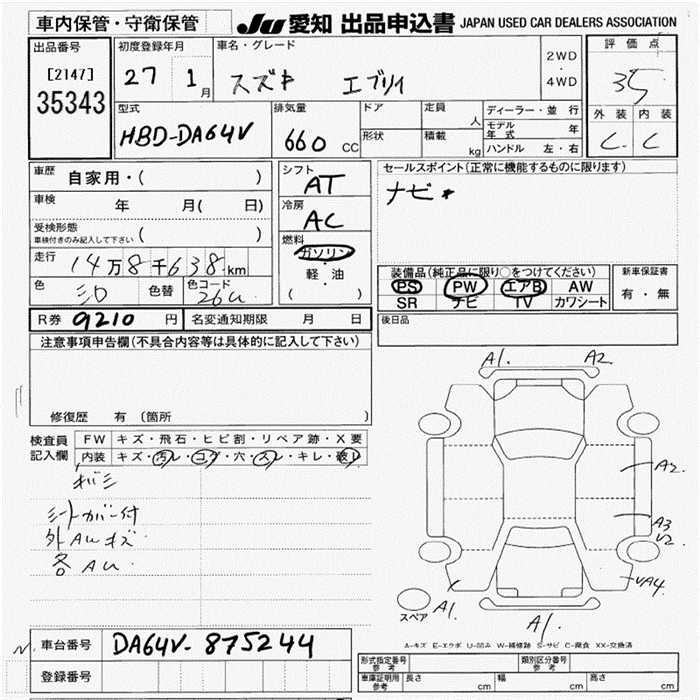 車内保管・守衛保管 JU 愛知 出品申込書 JAPAN USED CAR DEALERS ASSOCIATION
出品番号 初度登録年月 車名・グレード 2WD・4WD 評価点
[2147]
35343
27 1月 スズキ エブリイ 35
外装 内装
C C
型式 排気量 ドア 定員 人 ディーラー・並行
HBD-DA64V 660 CC 形状 積載 kg モデル年式 年
ハンドル 左・右
車歴 自家用・( ) シフト AT セールスポイント(正常に機能するものに限ります)
車検 年 月( 日) 冷房 AC ナビ
受検形態 車検付きのみ記入して下さい ( ) 燃料 ガソリン
走行 14万8千638km 軽・油 装備品(純正品に限り○をつけてください) 新車保証書
色 シロ 色替 色コード 26U ( ) PS PW エアB AW 有・無
SR ナビ TV カワシート
R券 9210 円 名変通知期限 月 日 後日品
注意事項申告欄(不具合内容等は具体的に記入して下さい)
修復歴 有 (箇所
検査員記入欄 FW キズ・飛石・ヒビ割・リペア跡・X要
内装 キズ・汚レ・コゲ・穴・スレ・キレ・破レ
シートカバー付
外AUキズ
各AU
A1. A2.
A2.
A3
U2.
UA4
スペア A1.
A1.
A-キズ E-エクボ U-凹み W-補修跡 S-サビ C-腐食 XX-交換済
車台番号 DA64V-875244
登録番号
形式指定番号 参考 類別区分番号 参考
車庫証明用 参考 長さ cm 幅 cm 高さ cm